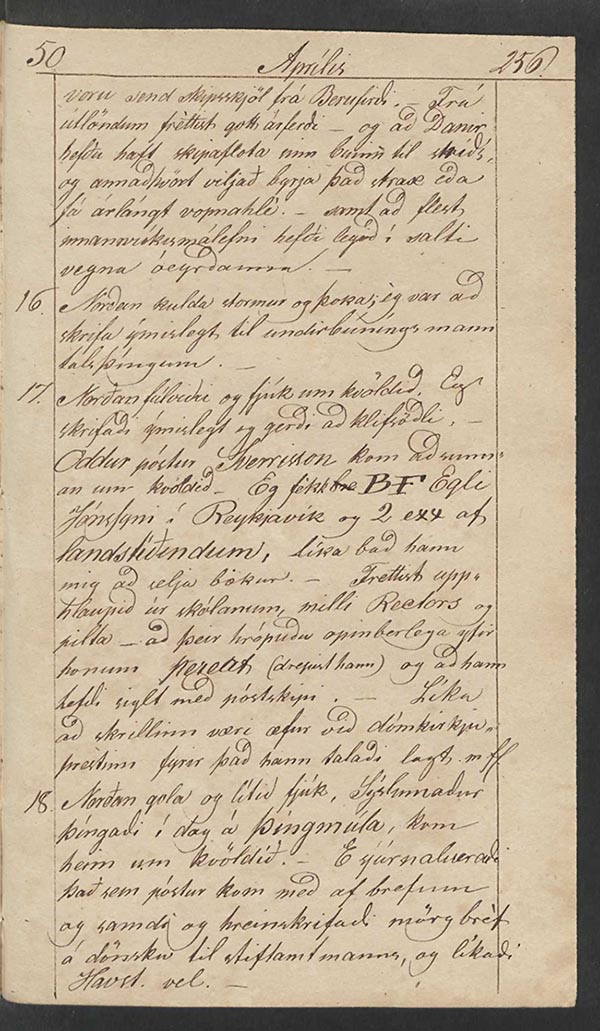 50 Aprílis 256.
voru send skipsskjöl frá Berufirði. – Frá
útlöndum fréttist gott árferði – og að Danir
hefðu haft skipaflota sinn búinn til stríðs,
og annaðhvört viljað byrja það strax eða
fá árlángt vopnahlé. – samt að flest
innanríkismálefni hefði legið í salti
vegna óeyrðanna. –
16. Norðan kulda stormur og þoka; èg var að
skrifa ýmislegt til undirbúnings mann
talsþíngum. –
17. Norðan fúlviðri og fjúk um kvöldið. Eg
skrifaði ýmislegt og gerði að klifsöðli. –
Oddur póstur Sverrisson kom að sunn-
an um kvöldið – Eg fèkk BF Egli
Jónssyni í Reykjavík og 2 exx af
landstíðindum, líka bað hann
mig að selja bækur. – Frettist upp-
hlaupið úr skólanum, milli Rectors og
pilta – að þeir hrópuðu opinberlega yfir
honum pereat (drepist hann) og að hann
hefði siglt með póstskipi. – Líka
að skríllinn væri æfur við dómkirkju-
prestinn fyrir það hann talaði lagt. m fl
18. Norðan gola og lítið fjúk. Sýslumaður
þíngaði í dag á Þíngmúla, kom
heim um kvöldið. –
það sem póstur kom með af brefum
og samdi og hreinskrifaði mörg bréf
á dönsku til stiftamtmanns, og líkaði
Havst. vel. –